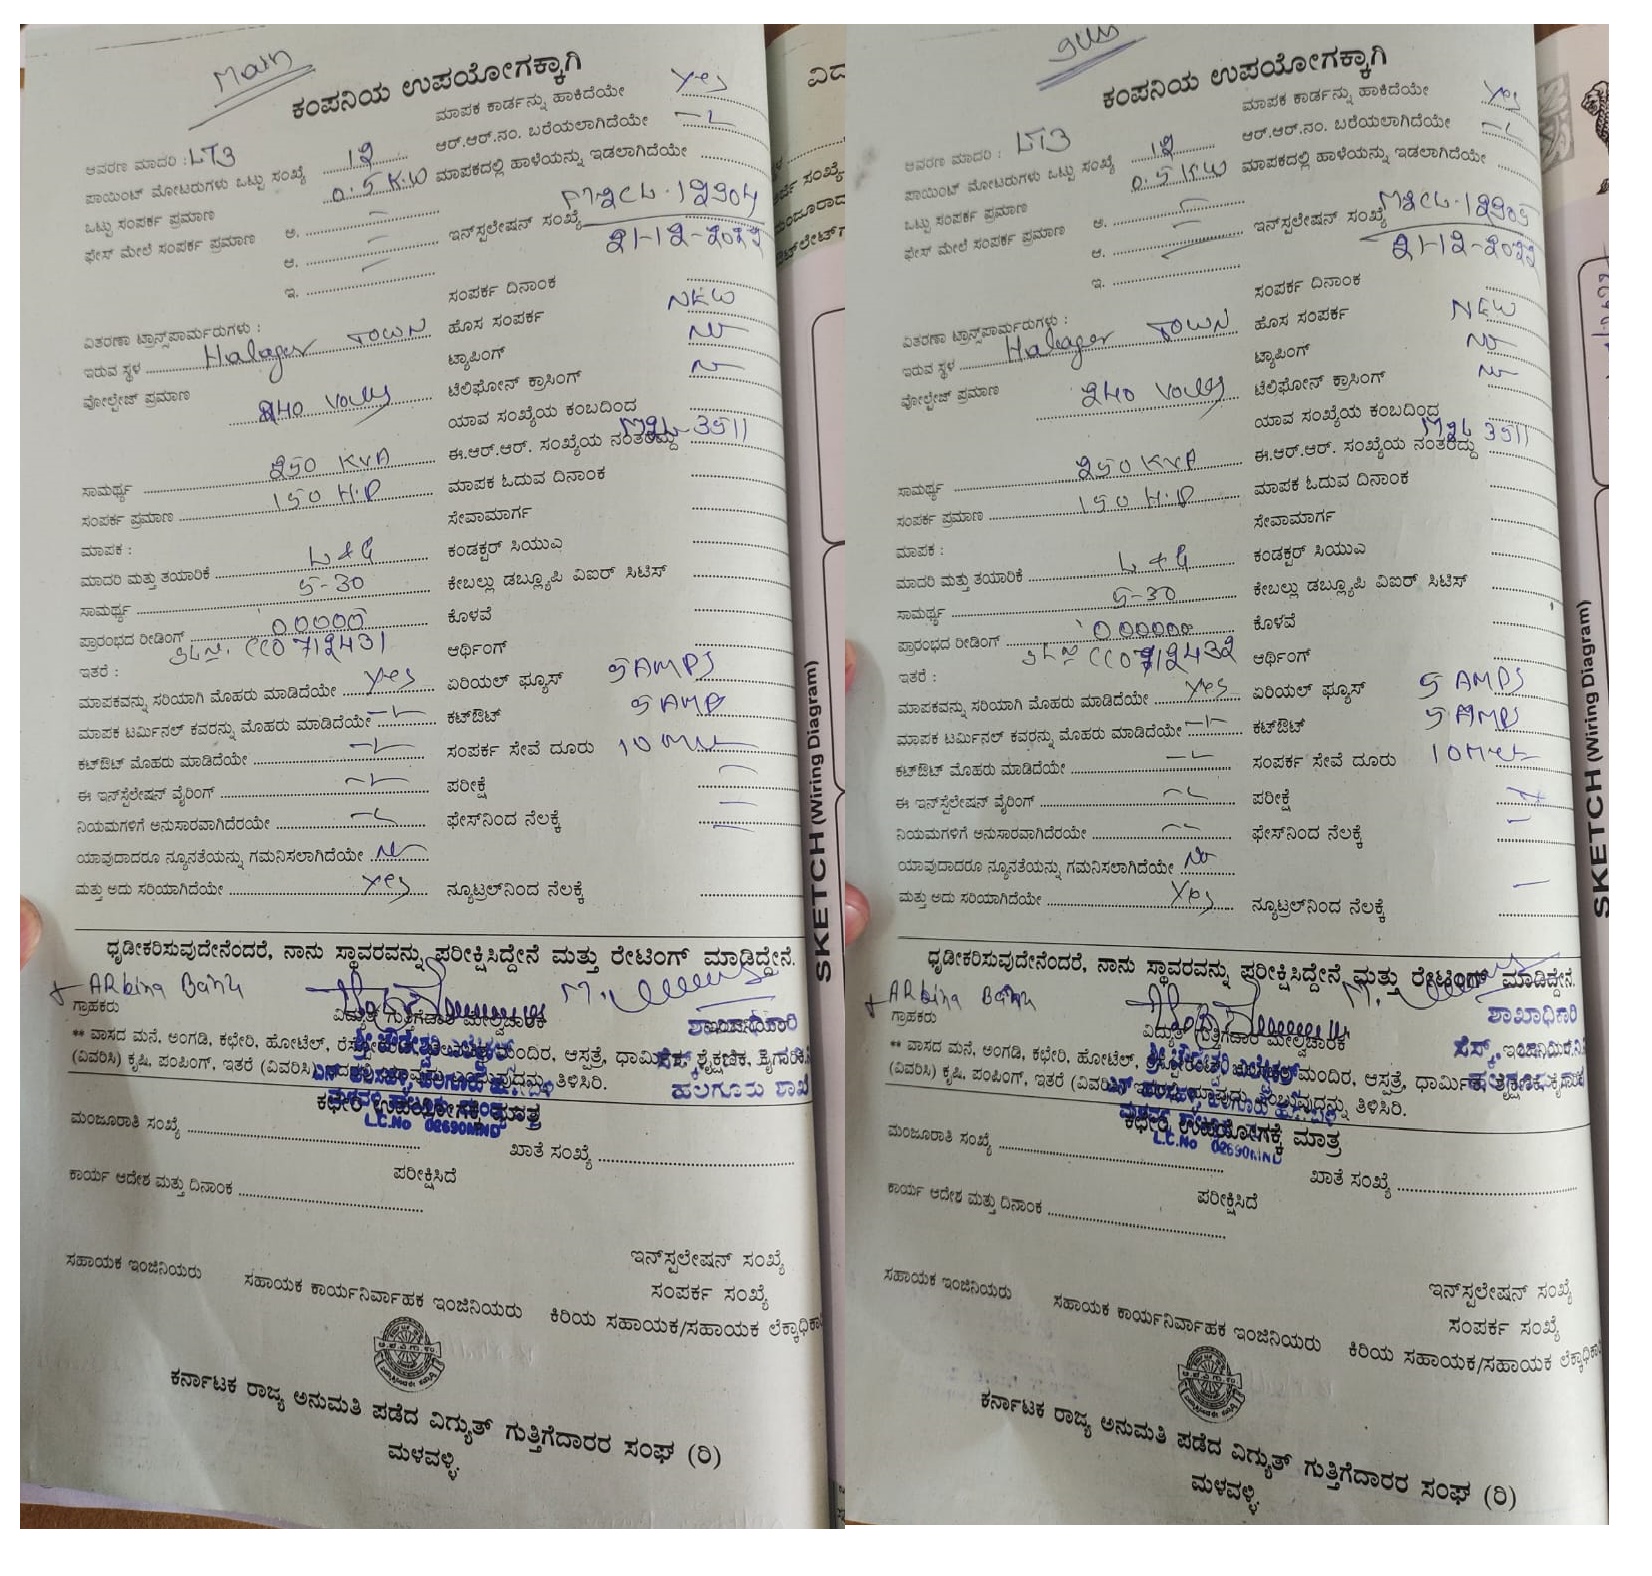 Main
ಕಂಪನಿಯ ಉಪಯೋಗಕ್ಕಾಗಿ
ಮಾಪಕ ಕಾರ್ಡನ್ನು ಹಾಕಿದೆಯೇ Yes
ಆರ್.ಆರ್.ನಂ. ಬರೆಯಲಾಗಿದೆಯೇ
ಆವರಣ ಮಾದರಿ : LT3
ಪಾಯಿಂಟ್ ಮೋಟರುಗಳು ಒಟ್ಟು ಸಂಖ್ಯೆ 12 ಮಾಪಕದಲ್ಲಿ ಹಾಳೆಯನ್ನು ಇಡಲಾಗಿದೆಯೇ
ಒಟ್ಟು ಸಂಪರ್ಕ ಪ್ರಮಾಣ 0.5 K.W
ಫೇಸ್ ಮೇಲೆ ಸಂಪರ್ಕ ಪ್ರಮಾಣ ಅ. ಇನ್‌ಸ್ಪಲೇಷನ್ ಸಂಖ್ಯೆ
ಆ. 21-12-2022
ಇ.
ಸಂಪರ್ಕ ದಿನಾಂಕ
ವಿತರಣಾ ಟ್ರಾನ್ಸ್‌ಪಾರ್ಮರುಗಳು : ಹೊಸ ಸಂಪರ್ಕ NEW
ಇರುವ ಸ್ಥಳ Halager TOWN ಟ್ಯಾಪಿಂಗ್ No
ವೋಲ್ಟೇಜ್ ಪ್ರಮಾಣ 240 Volts ಟೆಲಿಫೋನ್ ಕ್ರಾಸಿಂಗ್ No
ಯಾವ ಸಂಖ್ಯೆಯ ಕಂಬದಿಂದ
ಸಾಮರ್ಥ್ಯ 250 KVA ಈ.ಆರ್.ಆರ್. ಸಂಖ್ಯೆಯ ನಂತರದ್ದು 3511
ಸಂಪರ್ಕ ಪ್ರಮಾಣ 150 H.P ಮಾಪಕ ಓದುವ ದಿನಾಂಕ
ಮಾಪಕ : ಸೇವಾಮಾರ್ಗ
ಮಾದರಿ ಮತ್ತು ತಯಾರಿಕೆ L & G ಕಂಡಕ್ಟರ್ ಸಿಯುಎ
ಸಾಮರ್ಥ್ಯ 5-30 ಕೇಬಲ್ಲು ಡಬ್ಲ್ಯೂಪಿ ವಿಐರ್ ಸಿಟಿಸ್
ಪ್ರಾರಂಭದ ರೀಡಿಂಗ್ 00000 ಕೊಳವೆ
ಇತರೆ : CC0712431 ಆರ್ಥಿಂಗ್
ಮಾಪಕವನ್ನು ಸರಿಯಾಗಿ ಮೊಹರು ಮಾಡಿದೆಯೇ Yes ಏರಿಯಲ್ ಫ್ಯೂಸ್ 5 AMPS
ಮಾಪಕ ಟರ್ಮಿನಲ್ ಕವರನ್ನು ಮೊಹರು ಮಾಡಿದೆಯೇ ಕಟ್‌ಔಟ್ 5 AMP
ಕಟ್‌ಔಟ್ ಮೊಹರು ಮಾಡಿದೆಯೇ ಸಂಪರ್ಕ ಸೇವೆ ದೂರು 10
ಈ ಇನ್‌ಸ್ಟೆಲೇಷನ್ ವೈರಿಂಗ್ ಪರೀಕ್ಷೆ
ನಿಯಮಗಳಿಗೆ ಅನುಸಾರವಾಗಿದೆರಯೇ ಫೇಸ್‌ನಿಂದ ನೆಲಕ್ಕೆ
ಯಾವುದಾದರೂ ನ್ಯೂನತೆಯನ್ನು ಗಮನಿಸಲಾಗಿದೆಯೇ No
ಮತ್ತು ಅದು ಸರಿಯಾಗಿದೆಯೇ Yes ನ್ಯೂಟ್ರಲ್‌ನಿಂದ ನೆಲಕ್ಕೆ
ಧೃಡೀಕರಿಸುವುದೇನೆಂದರೆ, ನಾನು ಸ್ಥಾವರವನ್ನು ಪರೀಕ್ಷಿಸಿದ್ದೇನೆ ಮತ್ತು ರೇಟಿಂಗ್ ಮಾಡಿದ್ದೇನೆ.
ARbina Banu
ಗ್ರಾಹಕರು ವಿದ್ಯುತ್ ಗುತ್ತಿಗೆದಾರ ಮೇಲ್ವಿಚಾರಕ
** ವಾಸದ ಮನೆ, ಅಂಗಡಿ, ಕಛೇರಿ, ಹೋಟೆಲ್, ಮಂದಿರ, ಆಸ್ಪತ್ರೆ, ಧಾರ್ಮಿಕ, ಶೈಕ್ಷಣಿಕ,
(ವಿವರಿಸಿ) ಕೃಷಿ, ಪಂಪಿಂಗ್, ಇತರೆ (ವಿವರಿಸಿ) ತಿಳಿಸಿರಿ.
ಹಲಗೂರು ಶಾಖೆ
ಕಛೇರಿ ಉಪಯೋಗಕ್ಕೆ ಮಾತ್ರ
L.C.No 02690MND
ಮಂಜೂರಾತಿ ಸಂಖ್ಯೆ ಖಾತೆ ಸಂಖ್ಯೆ
ಪರೀಕ್ಷಿಸಿದೆ
ಕಾರ್ಯ ಆದೇಶ ಮತ್ತು ದಿನಾಂಕ
ಇನ್‌ಸ್ಪಲೇಷನ್ ಸಂಖ್ಯೆ
ಸಂಪರ್ಕ ಸಂಖ್ಯೆ
ಸಹಾಯಕ ಇಂಜಿನಿಯರು ಸಹಾಯಕ ಕಾರ್ಯನಿರ್ವಾಹಕ ಇಂಜಿನಿಯರು ಕಿರಿಯ ಸಹಾಯಕ/ಸಹಾಯಕ ಲೆಕ್ಕಾಧಿಕಾರಿ
ಕರ್ನಾಟಕ ರಾಜ್ಯ ಅನುಮತಿ ಪಡೆದ ವಿದ್ಯುತ್ ಗುತ್ತಿಗೆದಾರರ ಸಂಘ (ರಿ)
ಮಳವಳ್ಳಿ.
SKETCH (Wiring Diagram)
ಕಂಪನಿಯ ಉಪಯೋಗಕ್ಕಾಗಿ
ಮಾಪಕ ಕಾರ್ಡನ್ನು ಹಾಕಿದೆಯೇ Yes
ಆರ್.ಆರ್.ನಂ. ಬರೆಯಲಾಗಿದೆಯೇ
ಆವರಣ ಮಾದರಿ : LT3
ಪಾಯಿಂಟ್ ಮೋಟರುಗಳು ಒಟ್ಟು ಸಂಖ್ಯೆ 12 ಮಾಪಕದಲ್ಲಿ ಹಾಳೆಯನ್ನು ಇಡಲಾಗಿದೆಯೇ
ಒಟ್ಟು ಸಂಪರ್ಕ ಪ್ರಮಾಣ 0.5 KW
ಫೇಸ್ ಮೇಲೆ ಸಂಪರ್ಕ ಪ್ರಮಾಣ ಅ. ಇನ್‌ಸ್ಪಲೇಷನ್ ಸಂಖ್ಯೆ
ಆ. 21-12-2022
ಇ.
ಸಂಪರ್ಕ ದಿನಾಂಕ
ವಿತರಣಾ ಟ್ರಾನ್ಸ್‌ಪಾರ್ಮರುಗಳು : ಹೊಸ ಸಂಪರ್ಕ NEW
ಇರುವ ಸ್ಥಳ Halager TOWN ಟ್ಯಾಪಿಂಗ್ No
ವೋಲ್ಟೇಜ್ ಪ್ರಮಾಣ 240 Volts ಟೆಲಿಫೋನ್ ಕ್ರಾಸಿಂಗ್ No
ಯಾವ ಸಂಖ್ಯೆಯ ಕಂಬದಿಂದ
ಸಾಮರ್ಥ್ಯ 250 KVA ಈ.ಆರ್.ಆರ್. ಸಂಖ್ಯೆಯ ನಂತರದ್ದು 3511
ಸಂಪರ್ಕ ಪ್ರಮಾಣ 150 H.P ಮಾಪಕ ಓದುವ ದಿನಾಂಕ
ಮಾಪಕ : ಸೇವಾಮಾರ್ಗ
ಮಾದರಿ ಮತ್ತು ತಯಾರಿಕೆ L & G ಕಂಡಕ್ಟರ್ ಸಿಯುಎ
ಸಾಮರ್ಥ್ಯ 5-30 ಕೇಬಲ್ಲು ಡಬ್ಲ್ಯೂಪಿ ವಿಐರ್ ಸಿಟಿಸ್
ಪ್ರಾರಂಭದ ರೀಡಿಂಗ್ 000000 ಕೊಳವೆ
ಇತರೆ : CC0712432 ಆರ್ಥಿಂಗ್
ಮಾಪಕವನ್ನು ಸರಿಯಾಗಿ ಮೊಹರು ಮಾಡಿದೆಯೇ Yes ಏರಿಯಲ್ ಫ್ಯೂಸ್ 5 AMPS
ಮಾಪಕ ಟರ್ಮಿನಲ್ ಕವರನ್ನು ಮೊಹರು ಮಾಡಿದೆಯೇ ಕಟ್‌ಔಟ್ 5 AMPS
ಕಟ್‌ಔಟ್ ಮೊಹರು ಮಾಡಿದೆಯೇ ಸಂಪರ್ಕ ಸೇವೆ ದೂರು 10
ಈ ಇನ್‌ಸ್ಟೆಲೇಷನ್ ವೈರಿಂಗ್ ಪರೀಕ್ಷೆ
ನಿಯಮಗಳಿಗೆ ಅನುಸಾರವಾಗಿದೆರಯೇ ಫೇಸ್‌ನಿಂದ ನೆಲಕ್ಕೆ
ಯಾವುದಾದರೂ ನ್ಯೂನತೆಯನ್ನು ಗಮನಿಸಲಾಗಿದೆಯೇ No
ಮತ್ತು ಅದು ಸರಿಯಾಗಿದೆಯೇ Yes ನ್ಯೂಟ್ರಲ್‌ನಿಂದ ನೆಲಕ್ಕೆ
ಧೃಡೀಕರಿಸುವುದೇನೆಂದರೆ, ನಾನು ಸ್ಥಾವರವನ್ನು ಪರೀಕ್ಷಿಸಿದ್ದೇನೆ ಮತ್ತು ರೇಟಿಂಗ್ ಮಾಡಿದ್ದೇನೆ.
ARbina Banu ಶಾಖಾಧಿಕಾರಿ
ಗ್ರಾಹಕರು ವಿದ್ಯುತ್ ಗುತ್ತಿಗೆದಾರ ಮೇಲ್ವಿಚಾರಕ
** ವಾಸದ ಮನೆ, ಅಂಗಡಿ, ಕಛೇರಿ, ಹೋಟೆಲ್, ಮಂದಿರ, ಆಸ್ಪತ್ರೆ, ಧಾರ್ಮಿಕ,
(ವಿವರಿಸಿ) ಕೃಷಿ, ಪಂಪಿಂಗ್, ಇತರೆ ತಿಳಿಸಿರಿ.
ಕಛೇರಿ ಉಪಯೋಗಕ್ಕೆ ಮಾತ್ರ
L.C.No 02690MND
ಮಂಜೂರಾತಿ ಸಂಖ್ಯೆ ಖಾತೆ ಸಂಖ್ಯೆ
ಪರೀಕ್ಷಿಸಿದೆ
ಕಾರ್ಯ ಆದೇಶ ಮತ್ತು ದಿನಾಂಕ
ಇನ್‌ಸ್ಪಲೇಷನ್ ಸಂಖ್ಯೆ
ಸಂಪರ್ಕ ಸಂಖ್ಯೆ
ಸಹಾಯಕ ಇಂಜಿನಿಯರು ಸಹಾಯಕ ಕಾರ್ಯನಿರ್ವಾಹಕ ಇಂಜಿನಿಯರು ಕಿರಿಯ ಸಹಾಯಕ/ಸಹಾಯಕ
ಕರ್ನಾಟಕ ರಾಜ್ಯ ಅನುಮತಿ ಪಡೆದ ವಿದ್ಯುತ್ ಗುತ್ತಿಗೆದಾರರ ಸಂಘ (ರಿ)
ಮಳವಳ್ಳಿ.
SKETCH (Wiring Diagram)